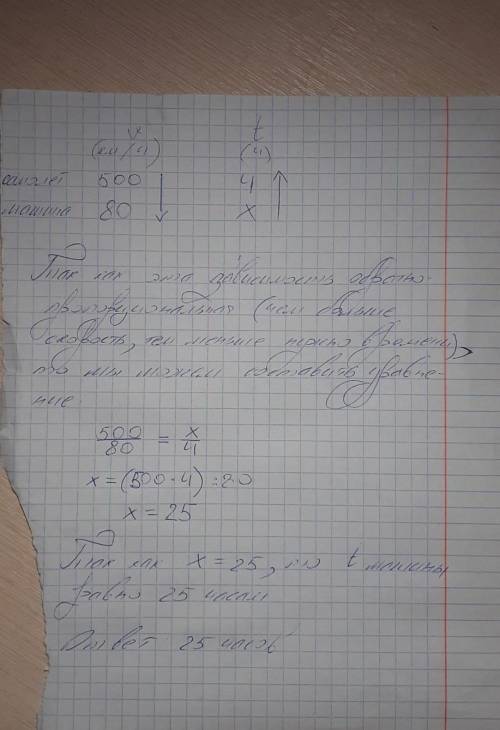 v t
(км/ч) (ч)
самолет 500 4
машина 80 x
Так как эта зависимость обратно-
пропорциональная (чем больше
скорость, тем меньше нужно времени),
то мы можем составить уравне-
ние
500/80 = x/4
x = (500 · 4) : 80
x = 25
Так как x = 25, то t машины
равно 25 часам
Ответ 25 часов